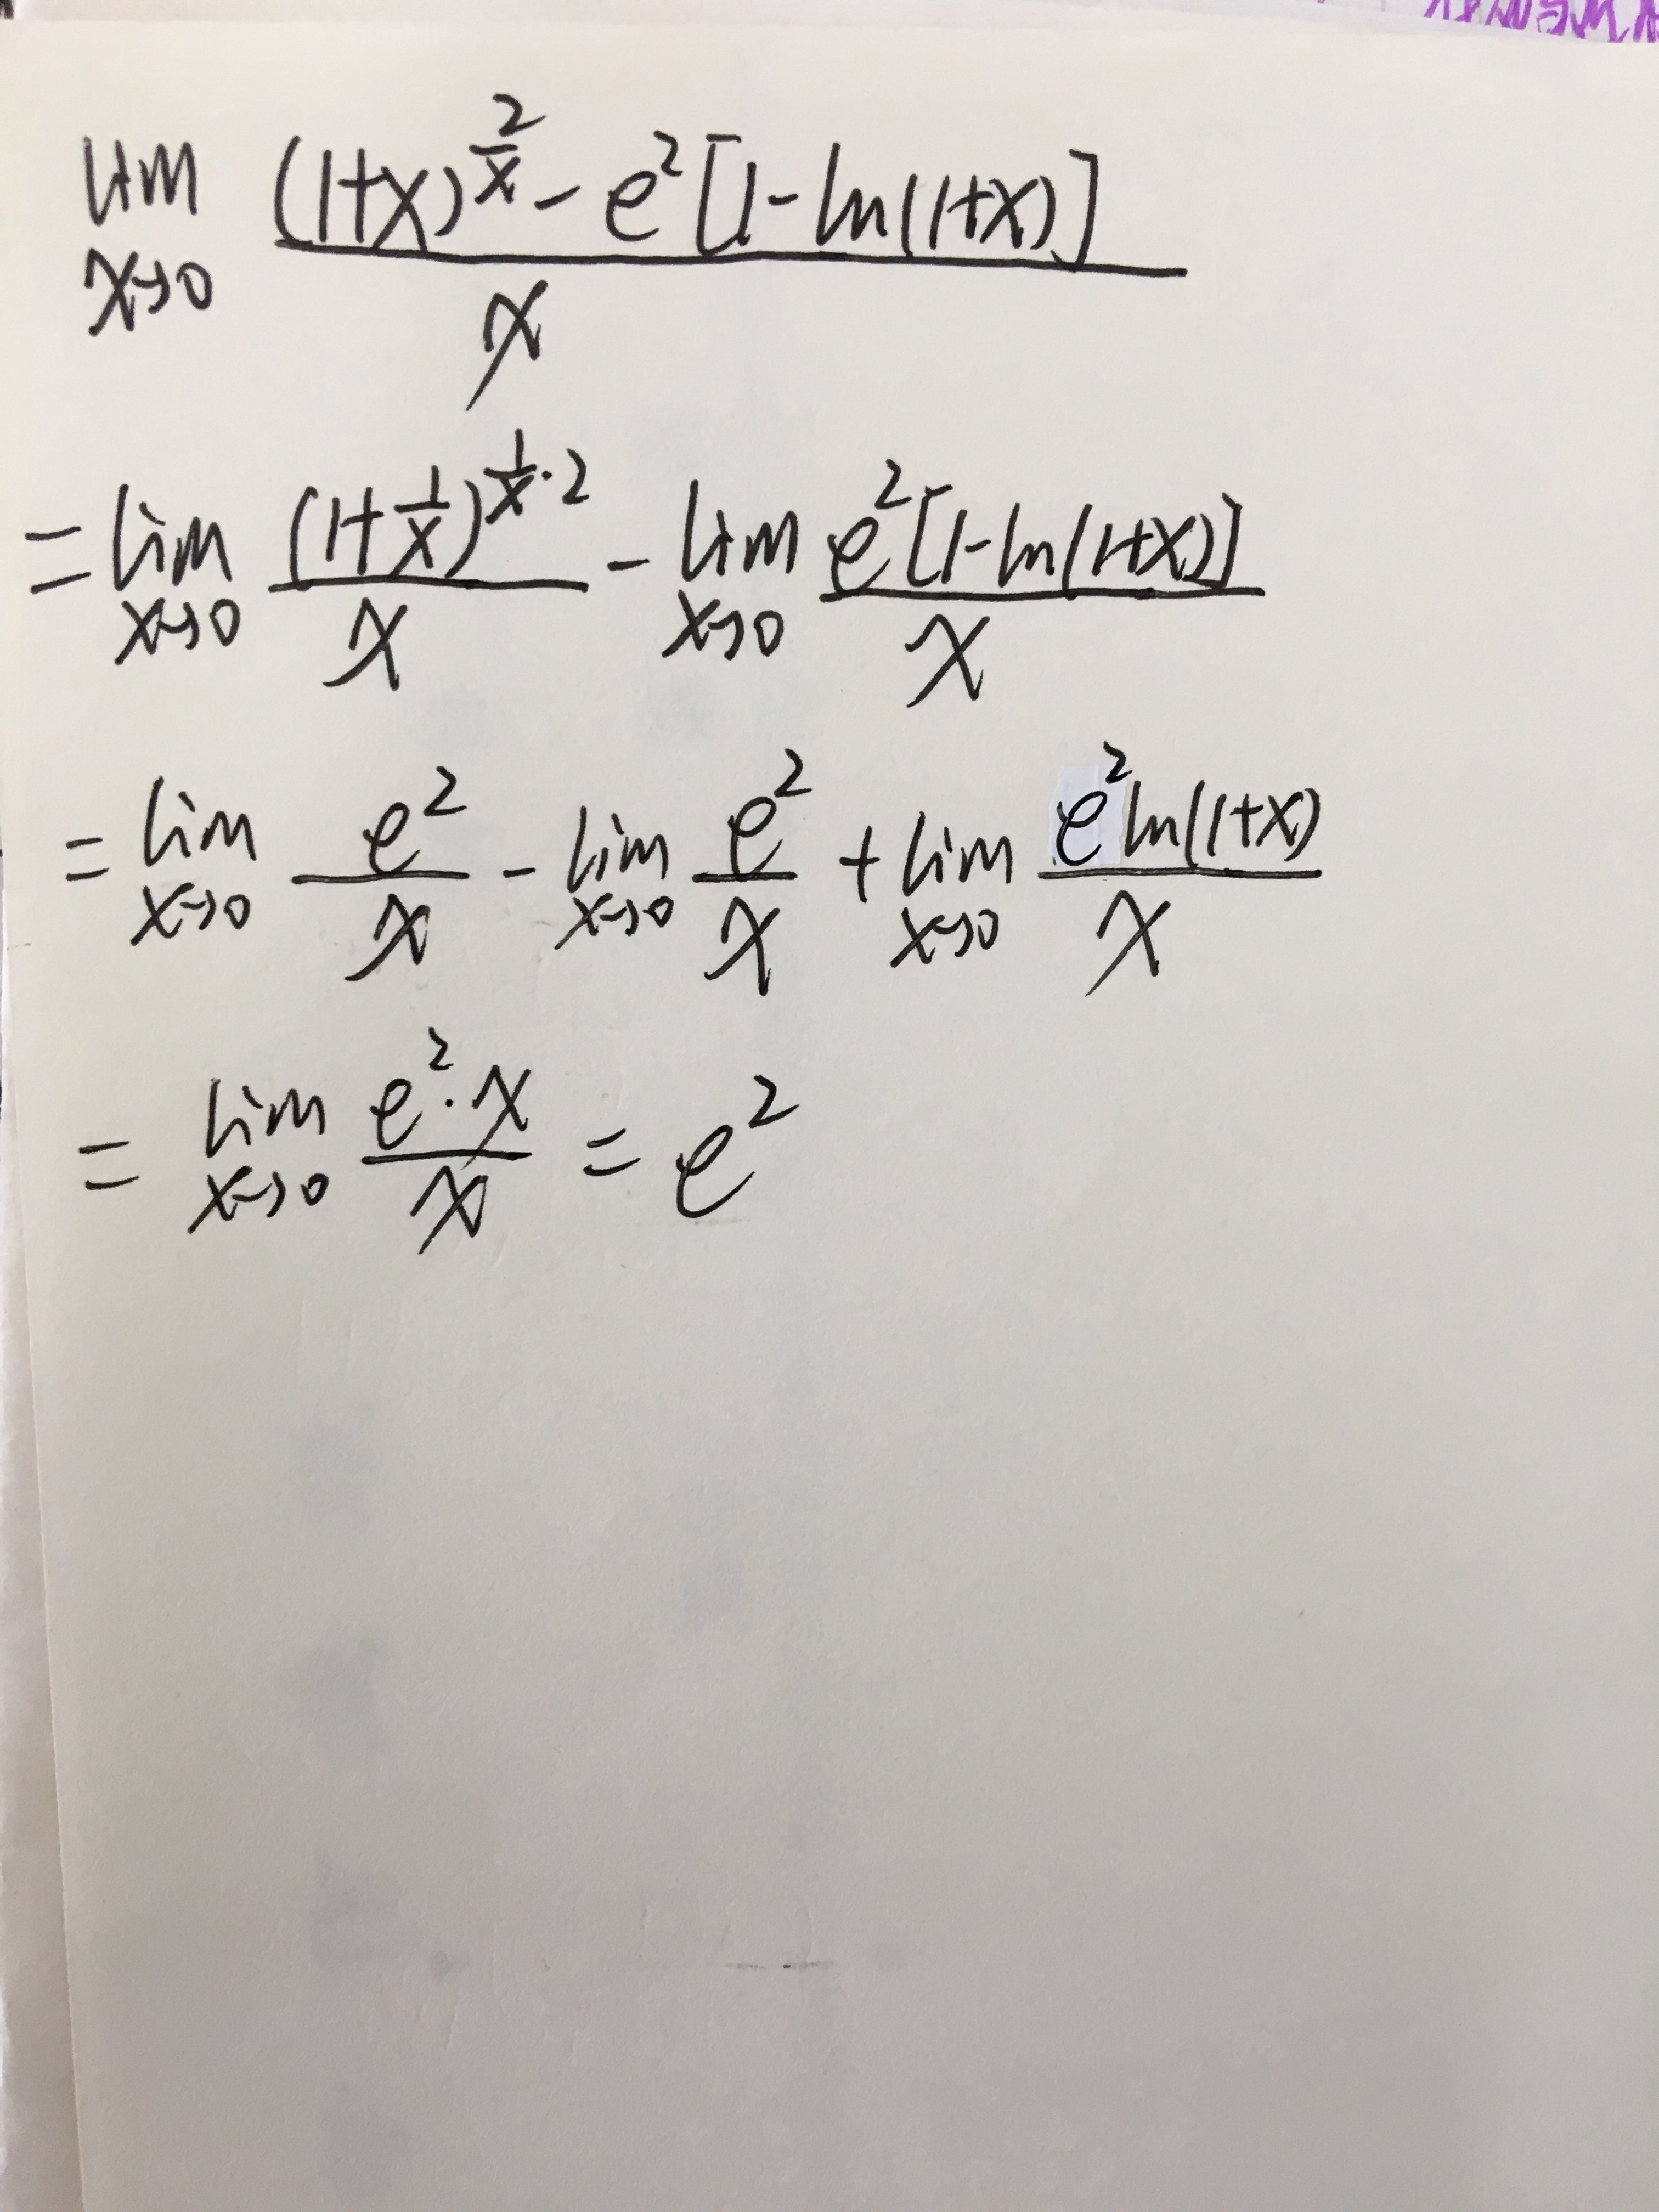 lim x→0 ((1+x)^(2/x) - e^2[1-ln(1+x)])/x
= lim x→0 ((1+1/x)^(1/x·2))/x - lim x→0 (e^2[1-ln(1+x)])/x
= lim x→0 e^2/x - lim x→0 e^2/x + lim x→0 (e^2 ln(1+x))/x
= lim x→0 (e^2·x)/x = e^2